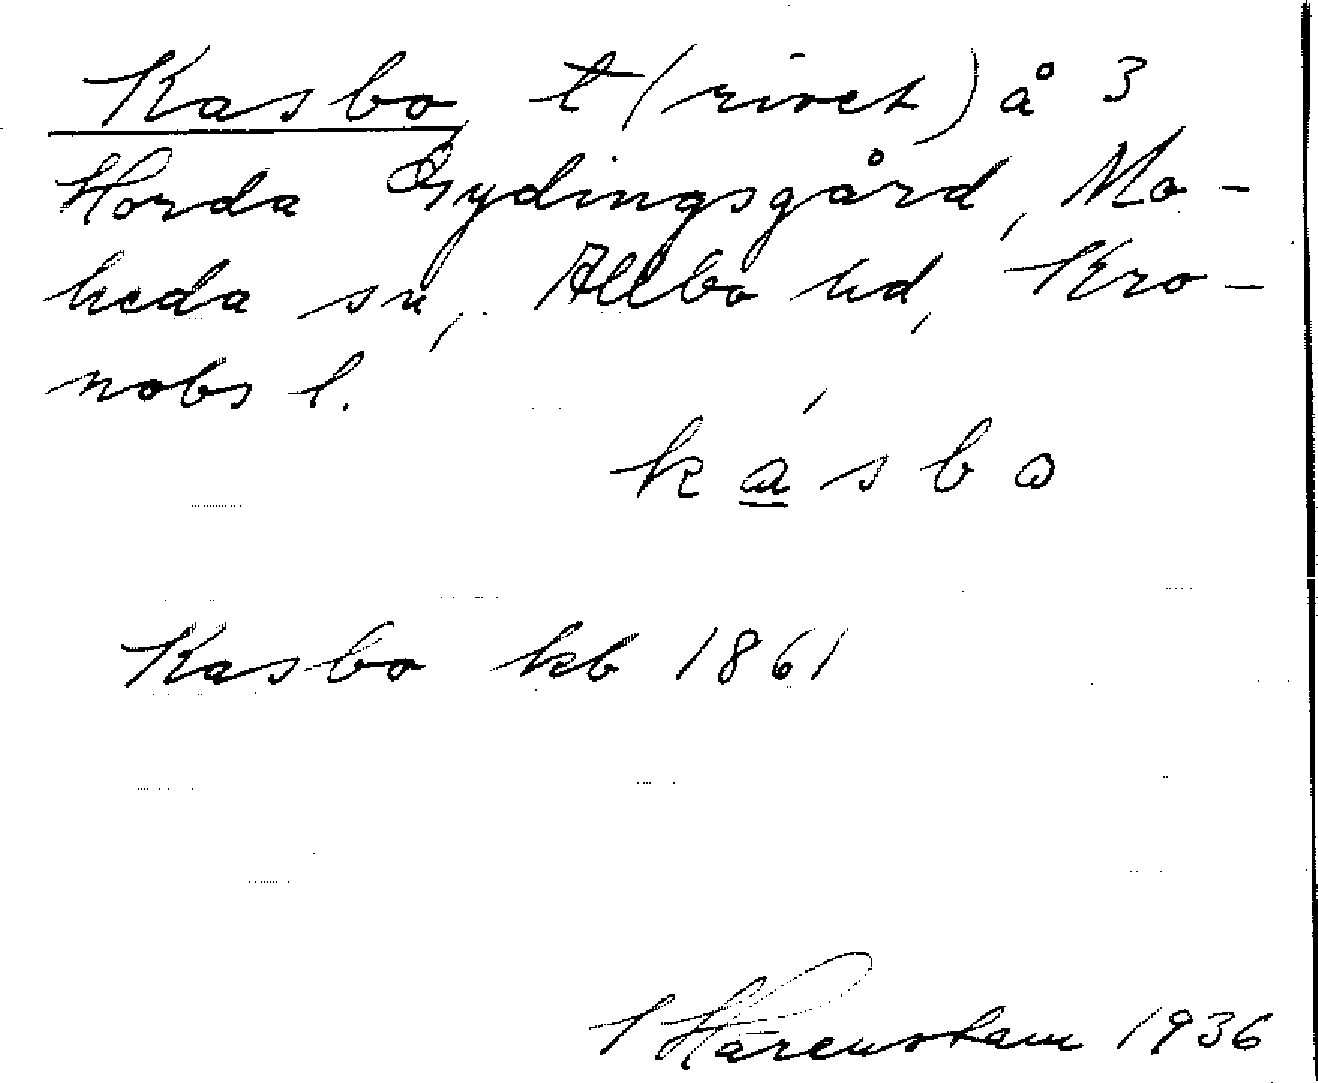 Kasbo t (rivet) å 3
Horda Gydingsgård, Mo-
heda sn, Allbo hd, Kro-
nobs l.
kásbo
Kasbo kb 1861
Härenstam 1936